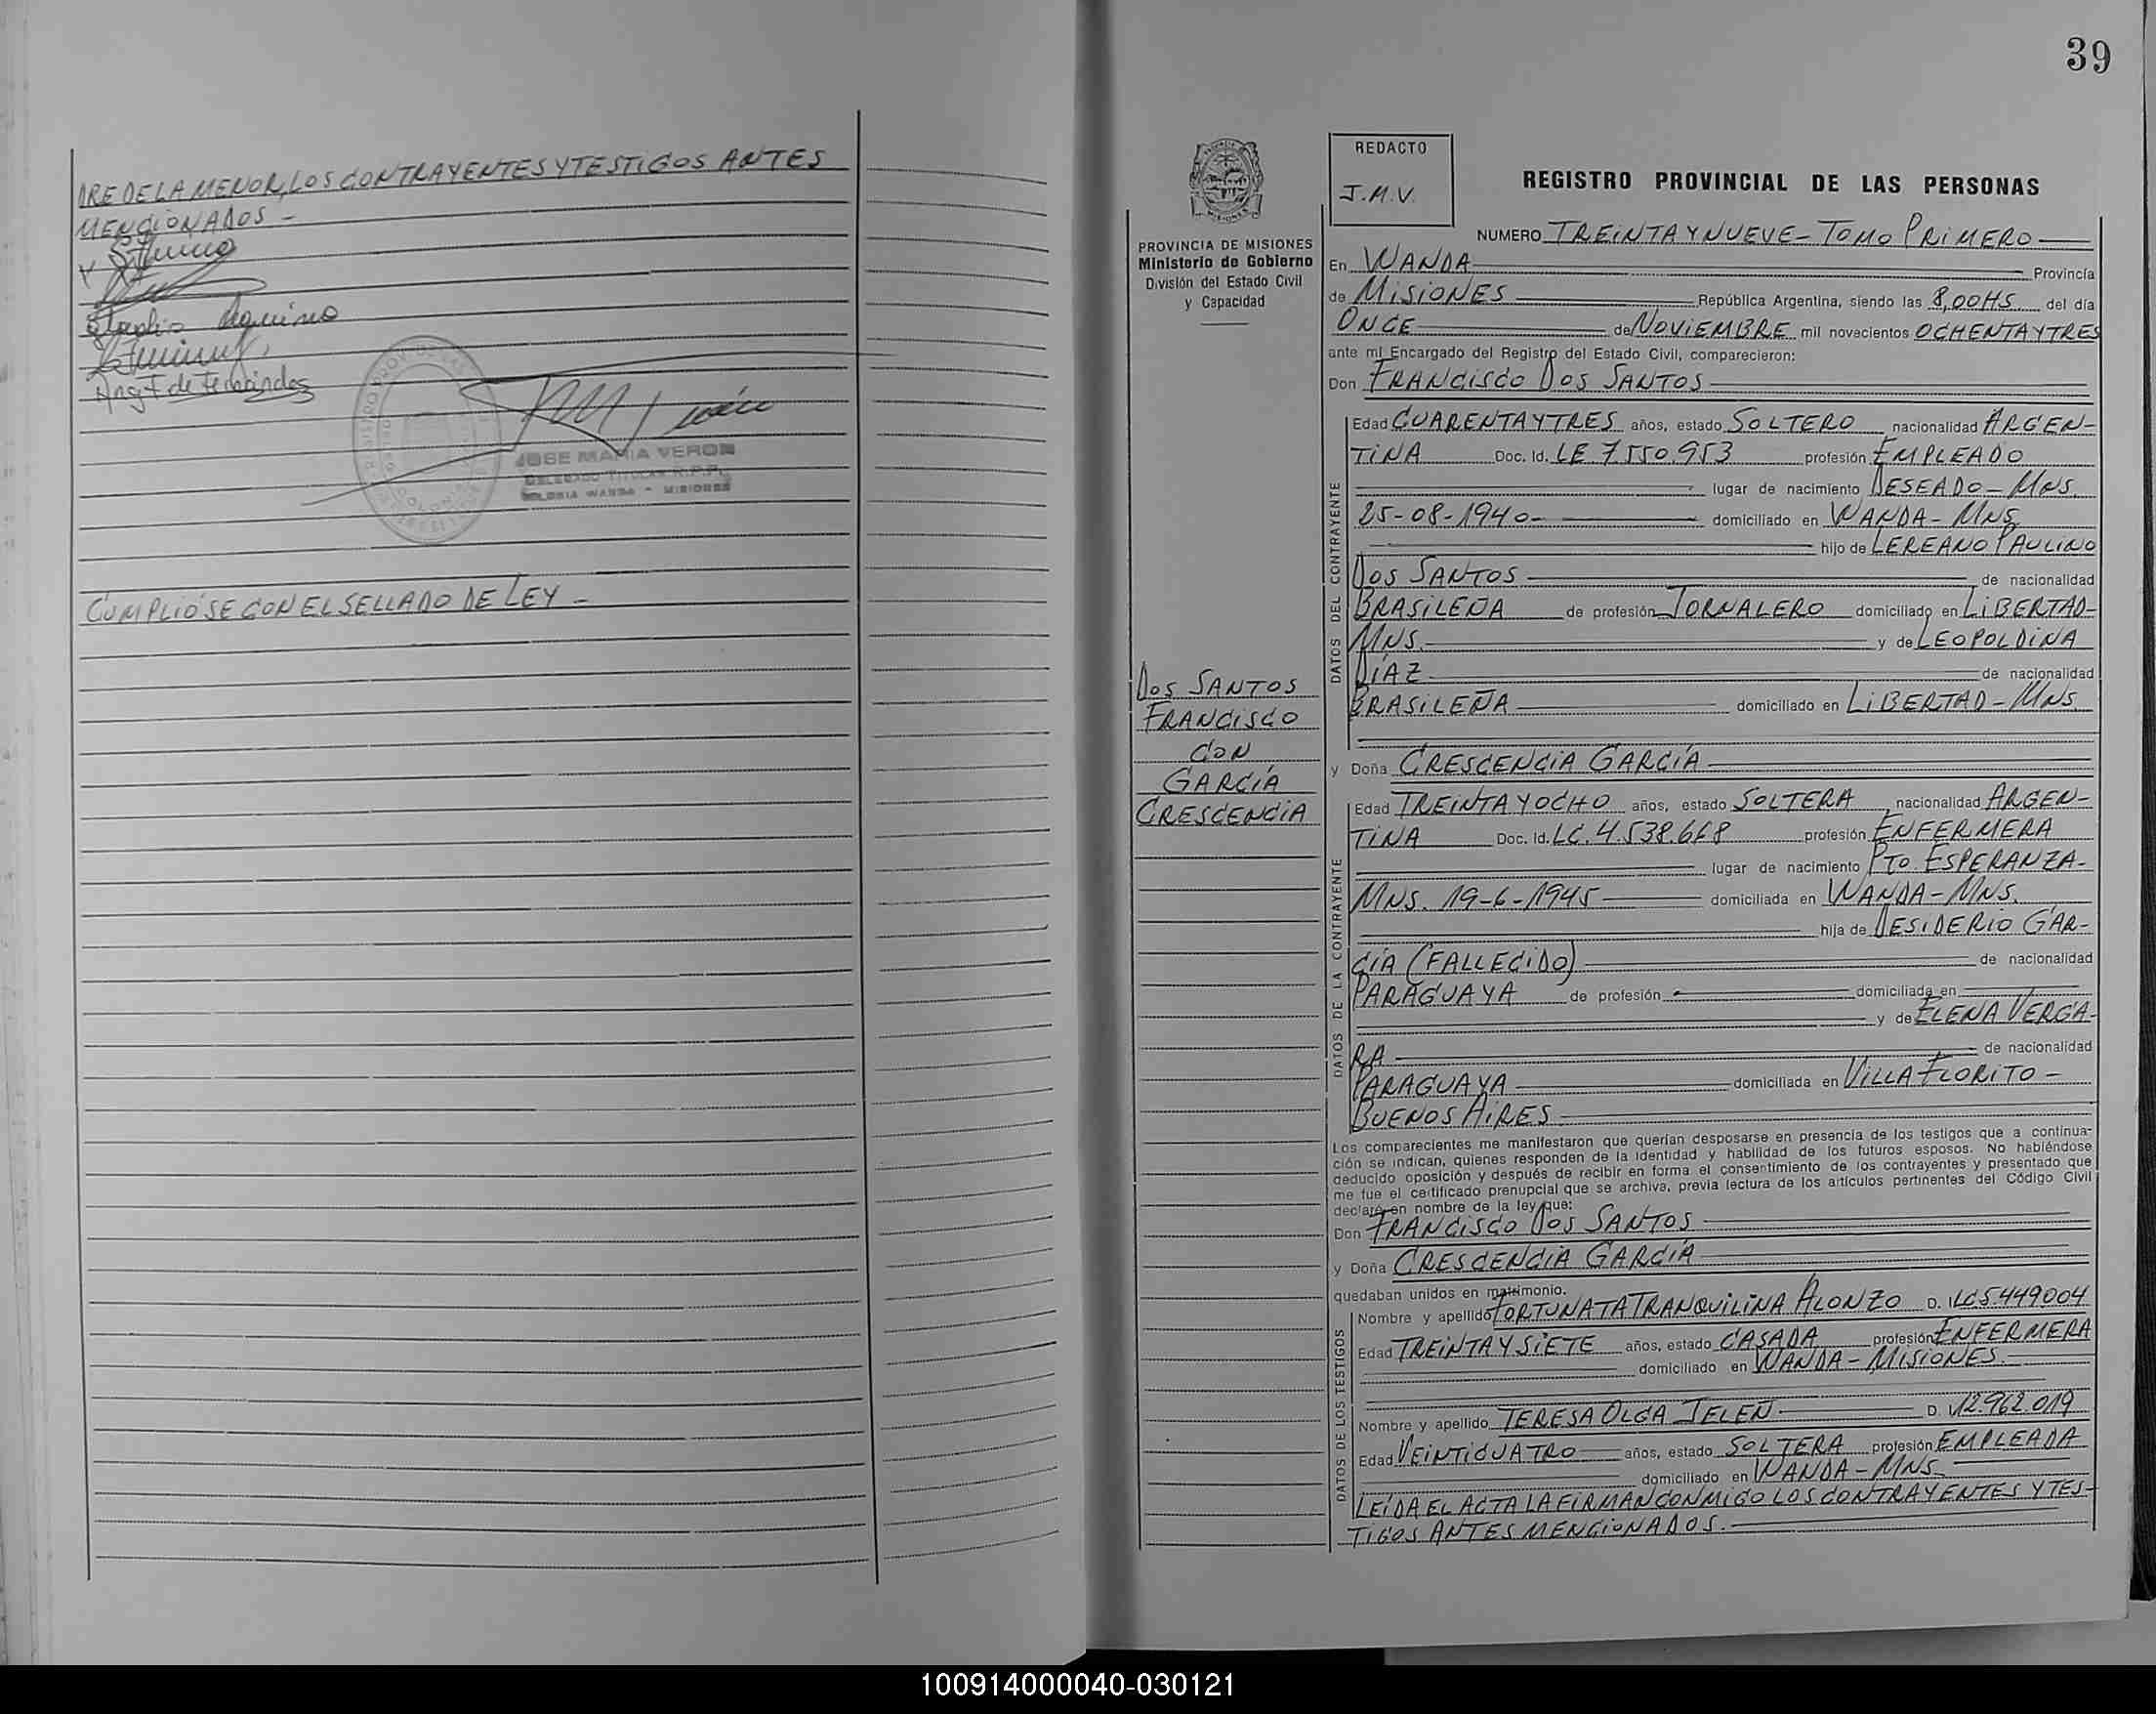 DRE DE LA MENOR, LOS CONTRAYENTES Y TESTIGOS ANTES
MENCIONADOS -
Aquino
Ang. F de Fernández
JOSE MARIA VERON
DELEGADO TITULAR R.P.P.
COLONIA WANDA - MISIONES
CUMPLIÓSE CON EL SELLADO DE LEY -
39
REDACTO
J.M.V.
PROVINCIA DE MISIONES
Ministerio de Gobierno
División del Estado Civil
y Capacidad
DOS SANTOS
FRANCISCO
CON
GARCÍA
CRESCENCIA
REGISTRO PROVINCIAL DE LAS PERSONAS
NUMERO TREINTA Y NUEVE - TOMO PRIMERO
En WANDA Provincia
de MISIONES República Argentina, siendo las 8,00HS del día
ONCE de NOVIEMBRE mil novecientos OCHENTA Y TRES
ante mí Encargado del Registro del Estado Civil, comparecieron:
Don FRANCISCO DOS SANTOS
DATOS DEL CONTRAYENTE
Edad CUARENTA Y TRES años, estado SOLTERO nacionalidad ARGEN-
TINA Doc. Id. LE 7.550.953 profesión EMPLEADO
lugar de nacimiento DESEADO - MNS.
25-08-1940- domiciliado en WANDA - MNS
hijo de LEREANO PAULINO
DOS SANTOS de nacionalidad
BRASILEÑA de profesión JORNALERO domiciliado en LIBERTAD-
MNS. y de LEOPOLDINA
DÍAZ de nacionalidad
BRASILEÑA domiciliado en LIBERTAD - MNS.
y Doña CRESCENCIA GARCÍA
DATOS DE LA CONTRAYENTE
Edad TREINTA Y OCHO años, estado SOLTERA nacionalidad ARGEN-
TINA Doc. Id. LC. 4.538.668 profesión ENFERMERA
lugar de nacimiento PTO. ESPERANZA-
MNS. 19-6-1945 domiciliada en WANDA - MNS.
hija de DESIDERIO GAR-
CÍA (FALLECIDO) de nacionalidad
PARAGUAYA de profesión - domiciliada en
y de ELENA VERGA-
RA de nacionalidad
PARAGUAYA domiciliada en VILLA FLORITO -
BUENOS AIRES
Los comparecientes me manifestaron que querían desposarse en presencia de los testigos que a continua-
ción se indican, quienes responden de la identidad y habilidad de los futuros esposos. No habiéndose
deducido oposición y después de recibir en forma el consentimiento de los contrayentes y presentado que
me fue el certificado prenupcial que se archiva, previa lectura de los artículos pertinentes del Código Civil
declaré en nombre de la ley que:
Don FRANCISCO DOS SANTOS
y Doña CRESCENCIA GARCÍA
quedaban unidos en matrimonio.
DATOS DE LOS TESTIGOS
Nombre y apellido FORTUNATA TRANQUILINA ALONZO D. I. LC 5449004
Edad TREINTA Y SIETE años, estado CASADA profesión ENFERMERA
domiciliado en WANDA - MISIONES.
Nombre y apellido TERESA OLGA JELEN D. I. 12.962.019
Edad VEINTICUATRO años, estado SOLTERA profesión EMPLEADA
domiciliado en WANDA - MNS.
LEÍDA EL ACTA LA FIRMAN CONMIGO LOS CONTRAYENTES Y TES-
TIGOS ANTES MENCIONADOS.
100914000040-030121